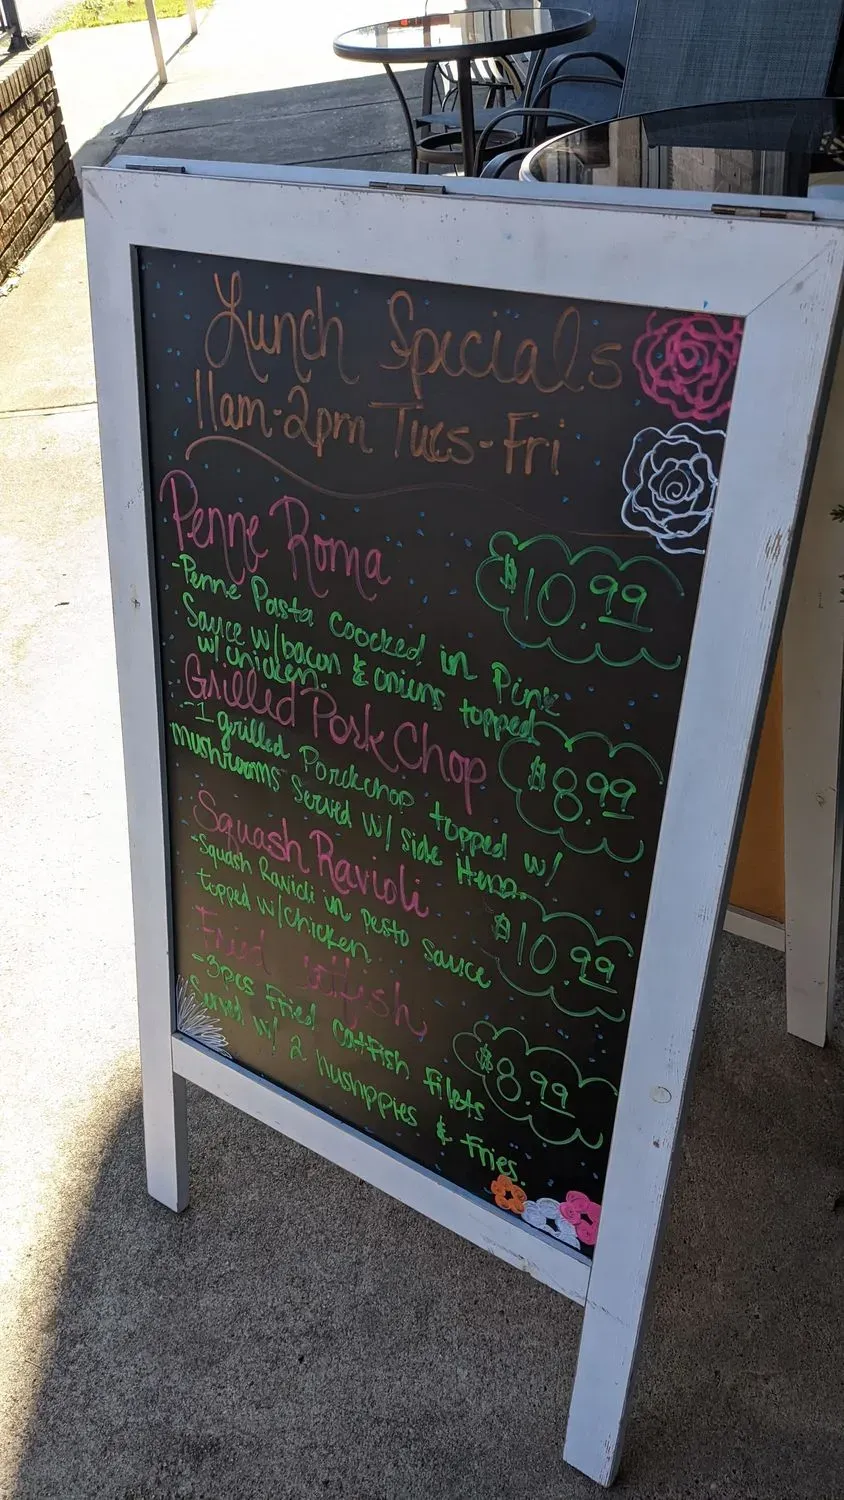 Lunch Specials
11am-2pm Tues-Fri
Penne Roma
$10.99
-Penne Pasta coocked in Pink
Sauce w/bacon & onions topped
w/chicken.
Grilled Pork Chop
$8.99
-1 grilled Porckchop topped w/
mushrooms Served w/ side items.
Squash Ravioli
$10.99
-Squash Ravioli in pesto sauce
topped w/chicken
Fried Catfish
$8.99
-3pcs Fried Catfish filets
Served w/ 2 hushppies & fries.